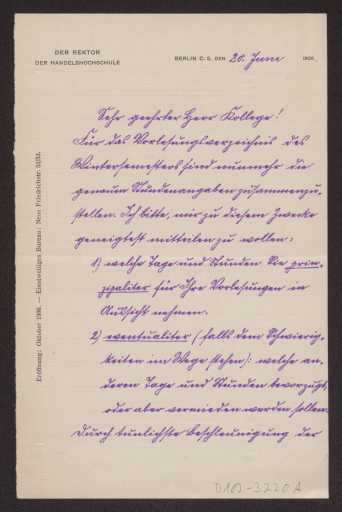 DER REKTOR
DER HANDELSHOCHSCHULE
BERLIN C. 2, DEN 20. Juni 1906.
Eröffnung: Oktober 1906. — Einstweiliges Bureau: Neue Friedrichstr. 51/52.
Sehr geehrter Herr Kollege!
Für das Vorlesungsverzeichnis des
Wintersemesters sind nunmehr die
genauen Stundenangaben zusammenzu-
stellen. Ich bitte, mir zu diesem Zwecke
geneigtest mitteilen zu wollen:
1) welche Tage und Stunden Sie prin-
zipaliter für Ihre Vorlesungen in
Aussicht nehmen.
2) eventualiter (falls dem Schwierig-
keiten im Wege stehen): welche an-
deren Tage und Stunden bevorzugt,
oder aber vermieden werden sollen.
Durch tunlichste Beschleunigung der
D102-3220A